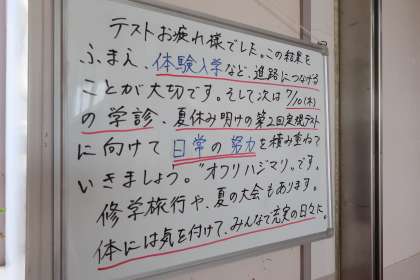 テストお疲れ様でした。この結果を
ふまえ、体験入学など、進路につなげる
ことが大切です。そして次は7/10(木)
の学診、夏休み明けの第2回定期テスト
に向けて日常の努力を積み重ねて
いきましょう。"オワリハジマリ"です。
修学旅行や、夏の大会もあります。
体には気を付けて、みんなで充実の日々に。